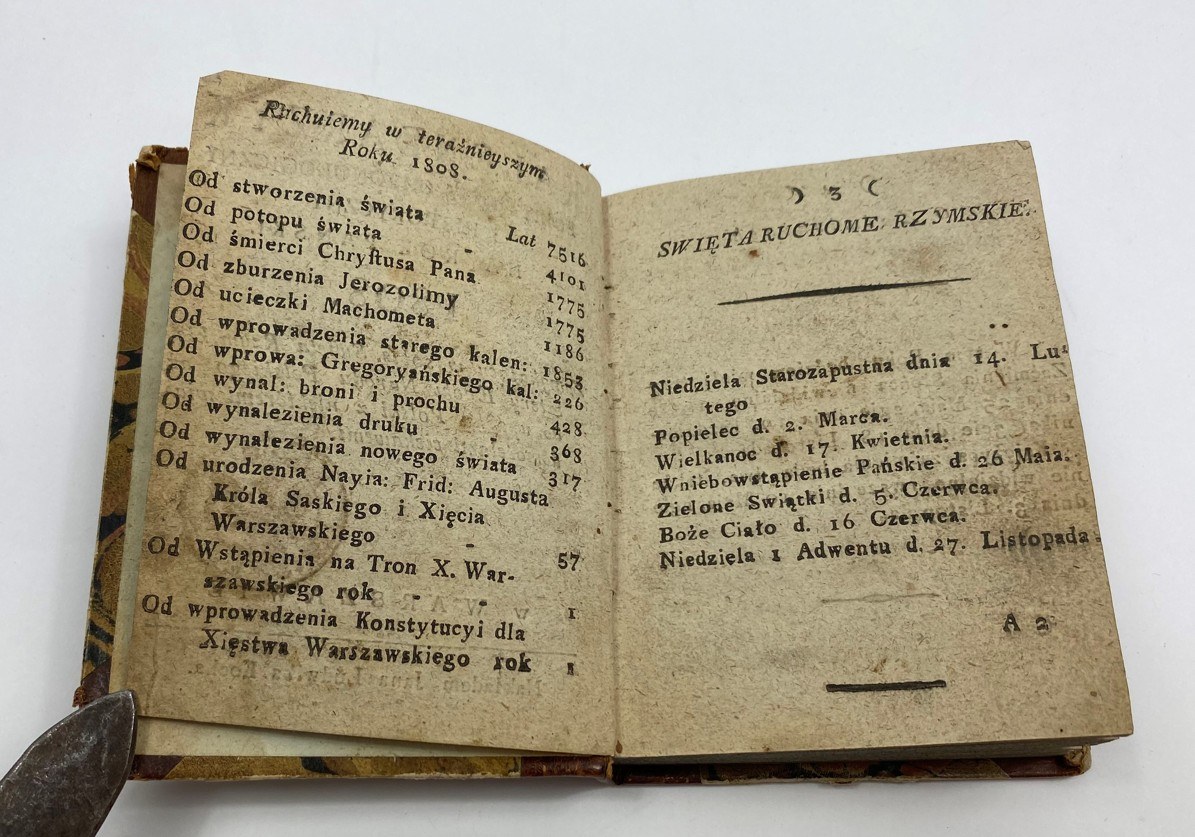 Rachuiemy w teraźnieyszym
Roku 1808.
Od stworzenia świata Lat 7516
Od potopu świata - 4101
Od śmierci Chryſtusa Pana 1775
Od zburzenia Jerozolimy 1775
Od ucieczki Machometa 1186
Od wprowadzenia starego kalen: 1853
Od wprowa: Gregoryańskiego kal: 226
Od wynal: broni i prochu 428
Od wynalezienia druku - 368
Od wynalezienia nowego świata 317
Od urodzenia Nayia: Frid: Augusta
Króla Saskiego i Xięcia
Warszawskiego - 57
Od Wstąpienia na Tron X. War-
szawskiego rok - - 1
Od wprowadzenia Konstytucyi dla
Xięstwa Warszawskiego rok 1
) 3 (
SWIĘTA RUCHOME RZYMSKIE.
Niedziela Starozapustna dnia 14. Lu-
tego
Popielec d. 2. Marca.
Wielkanoc d. 17. Kwietnia.
Wniebowstąpienie Pańskie d. 26 Maia.
Zielone Swiątki d. 5. Czerwca.
Boże Ciało d. 16 Czerwca.
Niedzięla 1 Adwentu d. 27. Listopada
A 2